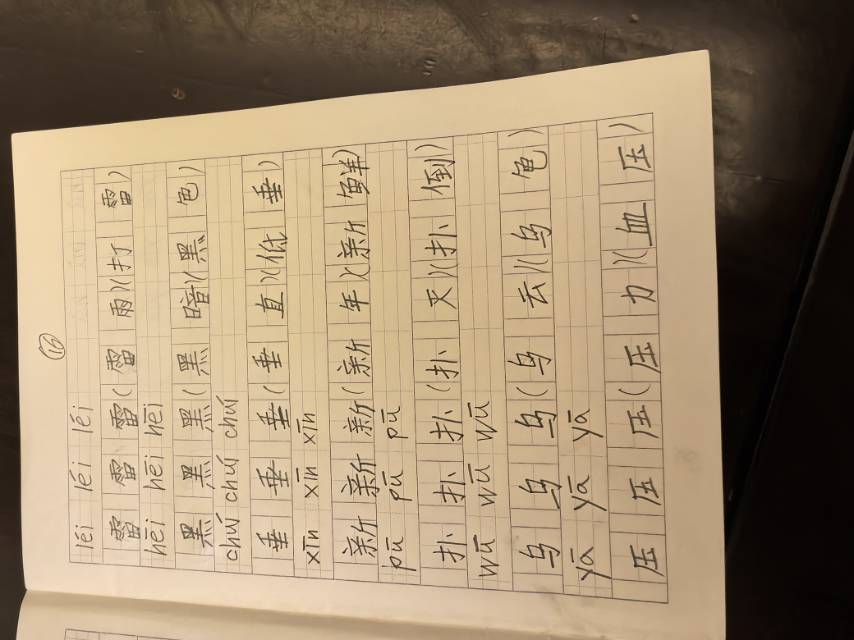 ⑯
léi léi léi
雷 雷 雷(雷 雨)(打 雷)
hēi hēi hēi
黑 黑 黑(黑 暗)(黑 色)
chuí chuí chuí
垂 垂 垂(垂 直)(低 垂)
xīn xīn xīn
新 新 新(新 年)(新 鲜)
pū pū pū
扑 扑 扑(扑 灭)(扑 倒)
wū wū wū
乌 乌 乌(乌 云)(乌 龟)
yā yā yā
压 压 压(压 力)(血 压)